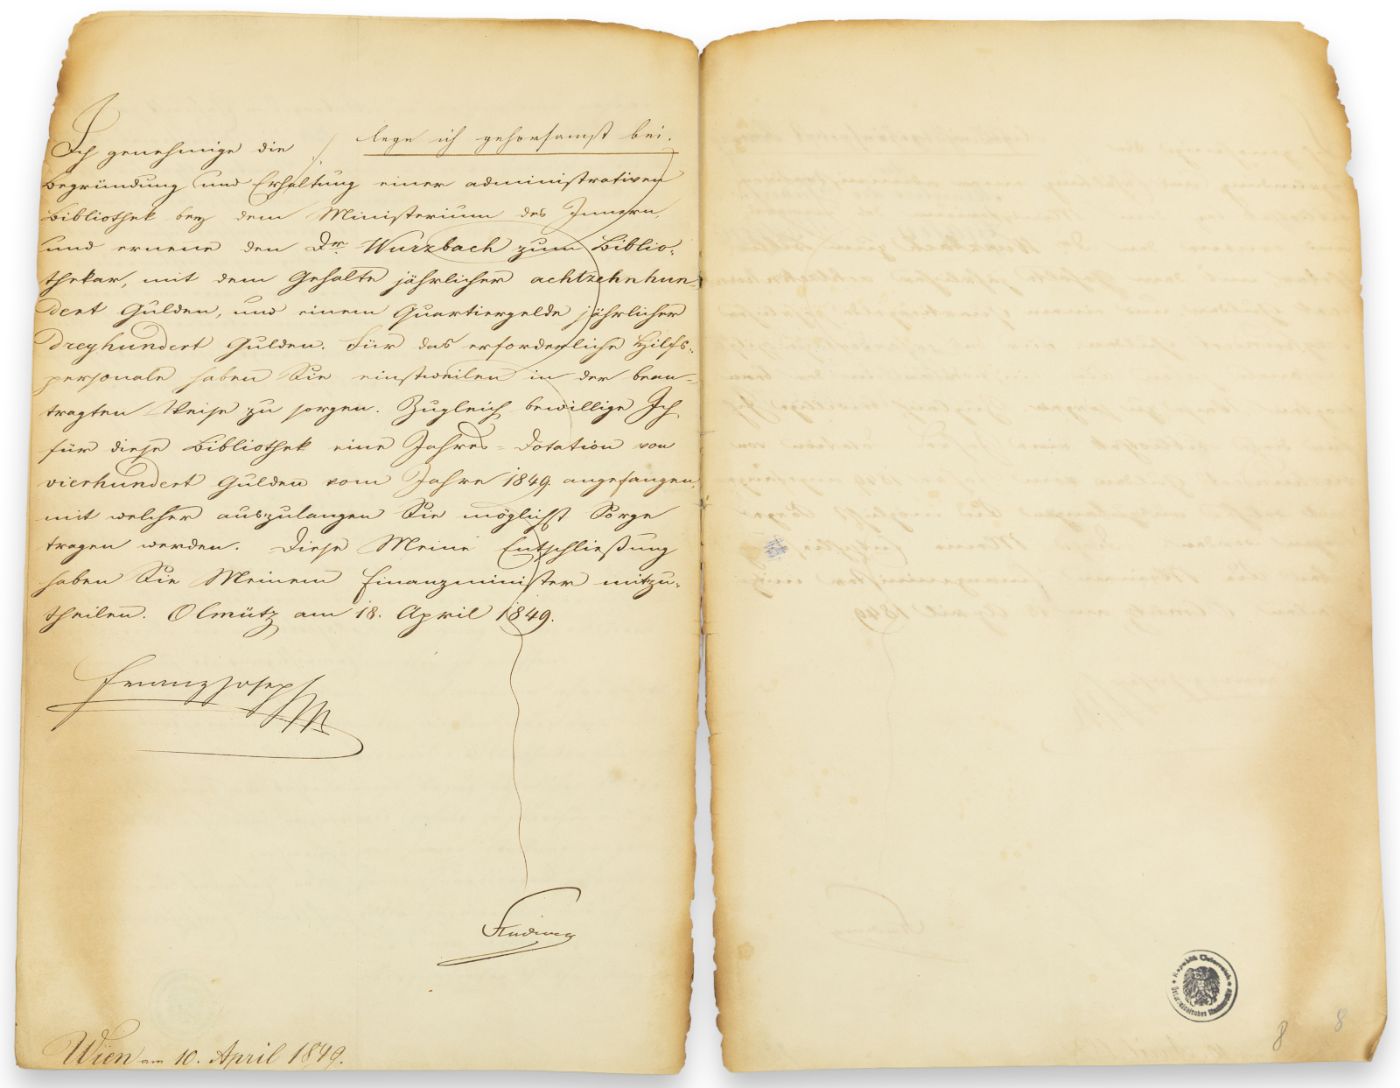 lege ich gehorsamst bei.
Ich genehmige die
Begründung und Erhaltung einer administrativen
Bibliothek bey dem Ministerium des Innern,
und ernene den Dr. Wurzbach zum Biblio-
thekar, mit dem Gehalte jährlicher achtzehnhun-
dert Gulden, und einem Quartiergelde jährlicher
dreyhundert Gulden. Für das erforderliche Hilfs-
personale haben Sie einstweilen in der bean-
tragten Weise zu sorgen. Zugleich bewillige Ich
für diese Bibliothek eine Jahres-Dotation von
vierhundert Gulden vom Jahre 1849 angefangen,
mit welcher auszulangen Sie möglichst Sorge
tragen werden. Diese Meine Entschließung
haben Sie Meinem Finanzminister mitzu-
theilen. Olmütz am 18. April 1849.
Franz Joseph
Wien am 10. April 1849.
Republik Österreich
8 8